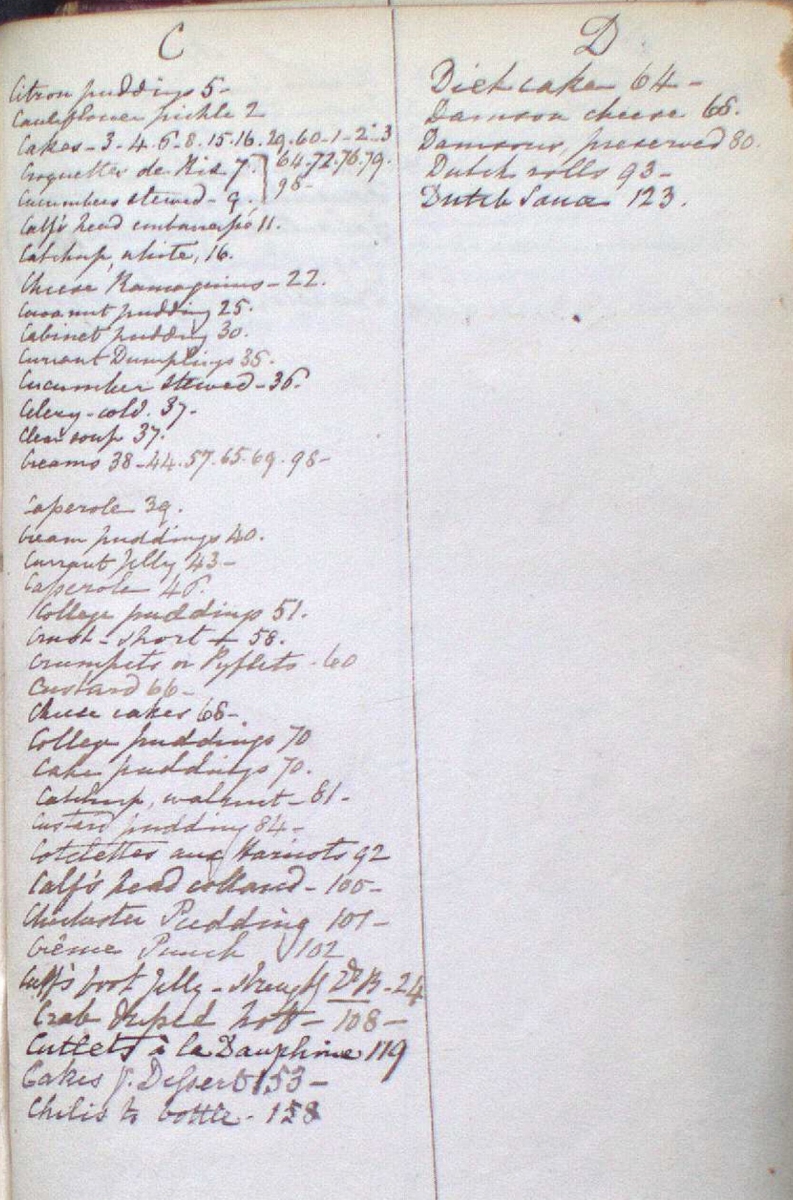 C
Citron puddings 5-
Cauliflower pickle 2
Cakes-3-4-6-8.15.16.29.60-1-2-3
Croquettes de Riz 7. 64.72.76.79.
98-
Cucumbers stewed-9.
Calf's head 11.
Catchup, white, 16.
Cheese Ramaquins-22.
Cocoanut pudding 25.
Cabinet pudding 30.
Currant Dumplings 35.
Cucumber stewed-36
Celery-cold. 37-
Clear soup 37.
Creams 38-44.57.65.69.98-
Caperole 39.
Cream puddings 40.
Currant Jelly 43-
Caperole 46.
College puddings 51.
Crust-short + 58.
Crumpets or Pyflets-60
Custard 66-
Cheese cakes 68-
College puddings 70
Cake puddings 70.
Catchup, walnut-81-
Custard pudding 84-
Cotelettes aux Haricots 92
Calf's head collared-100-
Chichester Pudding 101-
Crême Punch 102
Calf's foot Jelly- 24
Crab dressed hot-108-
Cutlets à la Dauphine 119
Cakes f. Dessert 153-
Chilis to bottle-158
D
Diet cake 64-
Damson cheese 68.
Damsons, preserved 80.
Dutch rolls 93-
Dutch Sauce 123.